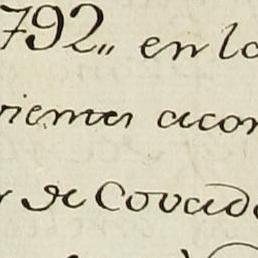 792,, en la
rientes acor
r de Covado